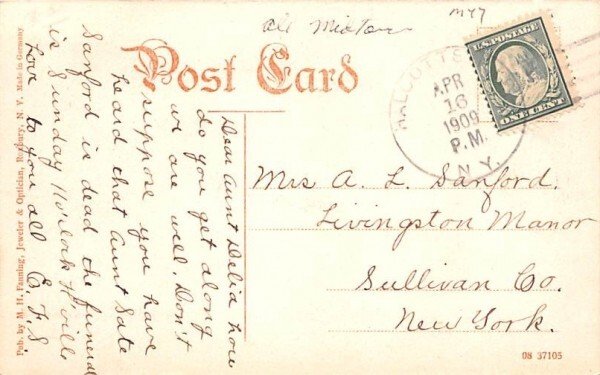 Old Midtown
MY7
Post Card
U.S. POSTAGE
ONE CENT
HALCOTTS
APR
16
1909
P.M.
N.Y.
Dear Aunt Delia how
do you get along
we are well. Don't
suppose you have
heard that Aunt Kate
Sanford is dead the funeral
is Sunday
Love to you all E.F.S.
Mrs A. L. Sanford.
Livingston Manor
Sullivan Co.
New York.
Pub. by M. H. Fanning, Jeweler & Optician, Roxbury, N. Y. Made in Germany
08 37105